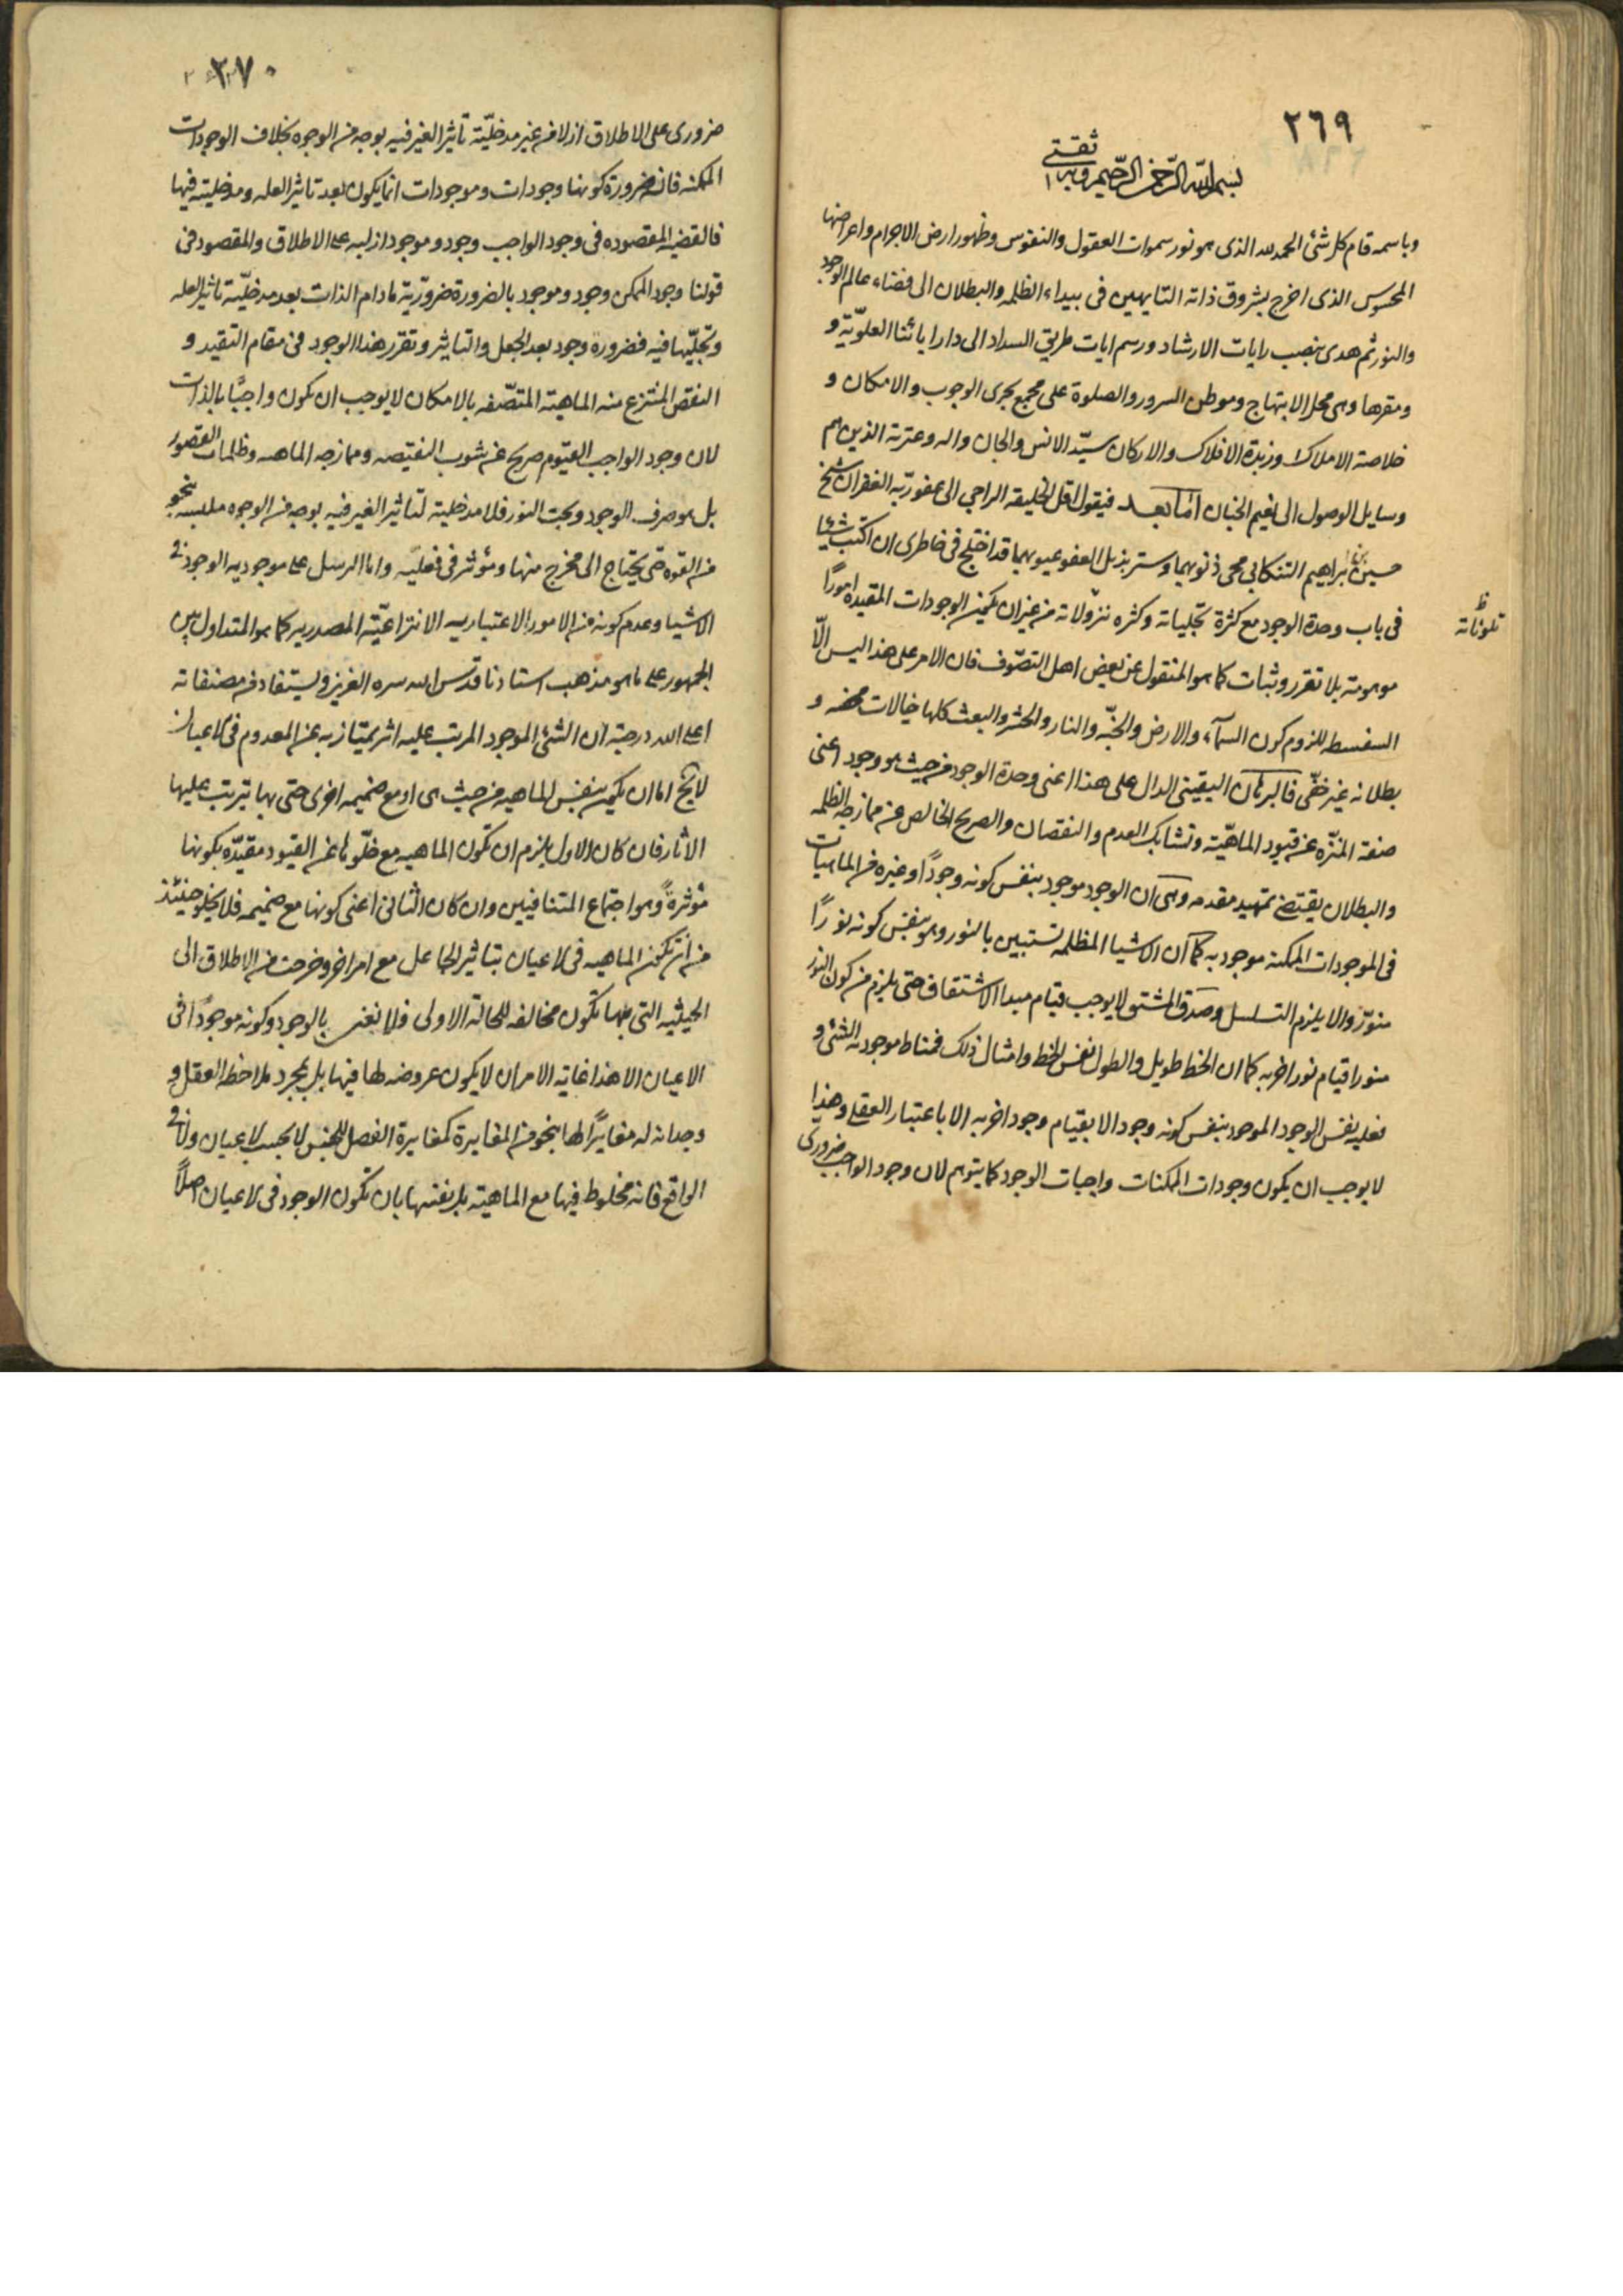 ٢٦٩
بسم الله الرحمن الرحيم وبه ثقتي
وباسمه قام كل شئ الحمد لله الذى هو نور سموات العقول والنفوس وظهور ارض الاجرام واعراضها
المحسوس الذى اخرج بشروق ذاته التايهين فى بيداء الظلمه والبطلان الى فضاء عالم الوجود
والنور ثم هدى بنصب رايات الارشاد ورسم ايات طريق السداد الى دار ابائنا العلويّة و
ومقرها وهى محل الابتهاج وموطن السرور والصلوة على مجمع بحرى الوجوب والامكان و
خلاصة الاملاك وزبدة الافلاك والاركان سيّد الانس والجان واله وعترته الذين هم
وسايل الوصول الى نعيم الجنان امّا بعد فيقول اقل الخليقه الراجى الى عفو ربّه الغفران شيخ
حسين بن ابراهيم التنكابى محى ذنوبهما وستر بذيل العفو عيوبهما قد اختلج فى خاطرى ان اكتب شيئا
فى باب وحدة الوجود مع كثرة تجلياته وكثره تنزّولاته من غير ان يكون الوجودات المقيده امورًا
ظ تلونّاته
موهومة بلا تقرر وثبات كما هو المنقول عن بعض اهل التصّوف فان الامر على هذا ليس الّا
السفسطه للزوم كون السمآء والارض والجنّه والنار والحشر والبعث كلها خيالات محضه و
بطلانه غير خفّى فالبرهان اليقينى الدال على هذا اعنى وحدة الوجود من حيث هو وجود اعنى
صنعة المنزّه عن قيود الماهيّة وتشابك العدم والنقصان والصريح الخالص عن ممازجه الظلمه
والبطلان يقتضى تمهيد مقدمه وهى ان الوجود موجود بنفس كونه وجودًا وغيره من الماهيات
فى الموجودات الممكنة موجود به كما ان الاشيا المظلمه تستبين بالنور وهو بنفس كونه نورًا
منوّر والا يلزم التسلسل وصدق المشتق لا يوجب قيام مبدا الاشتقاق حتى يلزم من كون النور
منورا قيام نور اخر به كما ان الخط طويل والطول نفس الخط وامثال ذلك فمناط موجوديه الشئ و
فعليه نفس الوجود الموجود بنفس كونه وجود الا بقيام وجود اخر به الا باعتبار العقلى وهذا
لا يوجب ان يكون وجودات الممكنات واجبات الوجود كما يتوهم لان وجود الواجب ضرورى
٢٧٠
ضرورى على الاطلاق ازلا من غير مدخليّة تأثير الغير فيه بوجه من الوجوه بخلاف الوجودات
الممكنه فان ضرورة كونها وجودات وموجودات انما يكون بعد تاثير العله ومدخليته فيها
فالقضيه المقصوده فى وجود الواجب وجود وموجود ازليه على الاطلاق والمقصود فى
قولنا وجود الممكن وجود وموجود بالضرورة ضروريّة مادام الذات بعد مدخليّة تاثير العله
وتجلّيها فيه فضرورة وجود بعد الجعل والتاثير وتقرر هذا الوجود فى مقام التقيد و
النقص المنتزع منه الماهية المتصّفه بالامكان لا يوجب ان تكون واجبًا بالذات
لان وجود الواجب القيوم صريح عن شوب النقيصه وممازجه الماهيه وظلمات القصور
بل هو صرف الوجود وبحت النور فلا مدخلية لتاثير الغير فيه بوجه من الوجوه ملبسه بنحو
من القوه حتى يحتاج الى مخرج منها ومؤثر فى فعليّه واما الرسل على موجوديه الوجود فى
الاشيا وعدم كونه من الامور الاعتباريه الانتزاعيّة المصدريه كما هو المتداول بين
الجمهور على ما هو مذهب استادنا قدس الله سره العزيز ويستفاد من مصنفاته
اعلى الله درجته ان الشئ الموجود المرتب عليه اثر يمتاز به عن المعدوم فى الاعيان
لا يخ اما ان يكون بنفس الماهيه من حيث هى او مع ضميمه اخرى حتى بها يترتب عليها
الاثار فان كان الاول يلزم ان تكون الماهيه مع خلّوها عن القيود مقيدّه بكونها
مؤثرةً وهو اجتماع المتنافيين وان كان الثانى اعنى كونها مع ضميمه فلا يخلو حينئذ
من ان تكون الماهيه فى الاعيان بتاثير الجاعل مع امر اخر وخرجت من الاطلاق الى
الحيثيه التى بها تكون مخالفه للحالة الاولى فلا نعنى بالوجود وكونه موجودًا فى
الاعيان الا هذا غاية الامر ان لا يكون عروضه لها فيها بل بمجرد ملاحظه العقل و
وجدانه له مغايرًا لها بنحو من المغايرة كمغايرة الفصل للجنس لا بحسب الاعيان ولا فى
الواقع فانه مخلوط فيها مع الماهية بل بعينها بان تكون الوجود فى الاعيان اصلاً